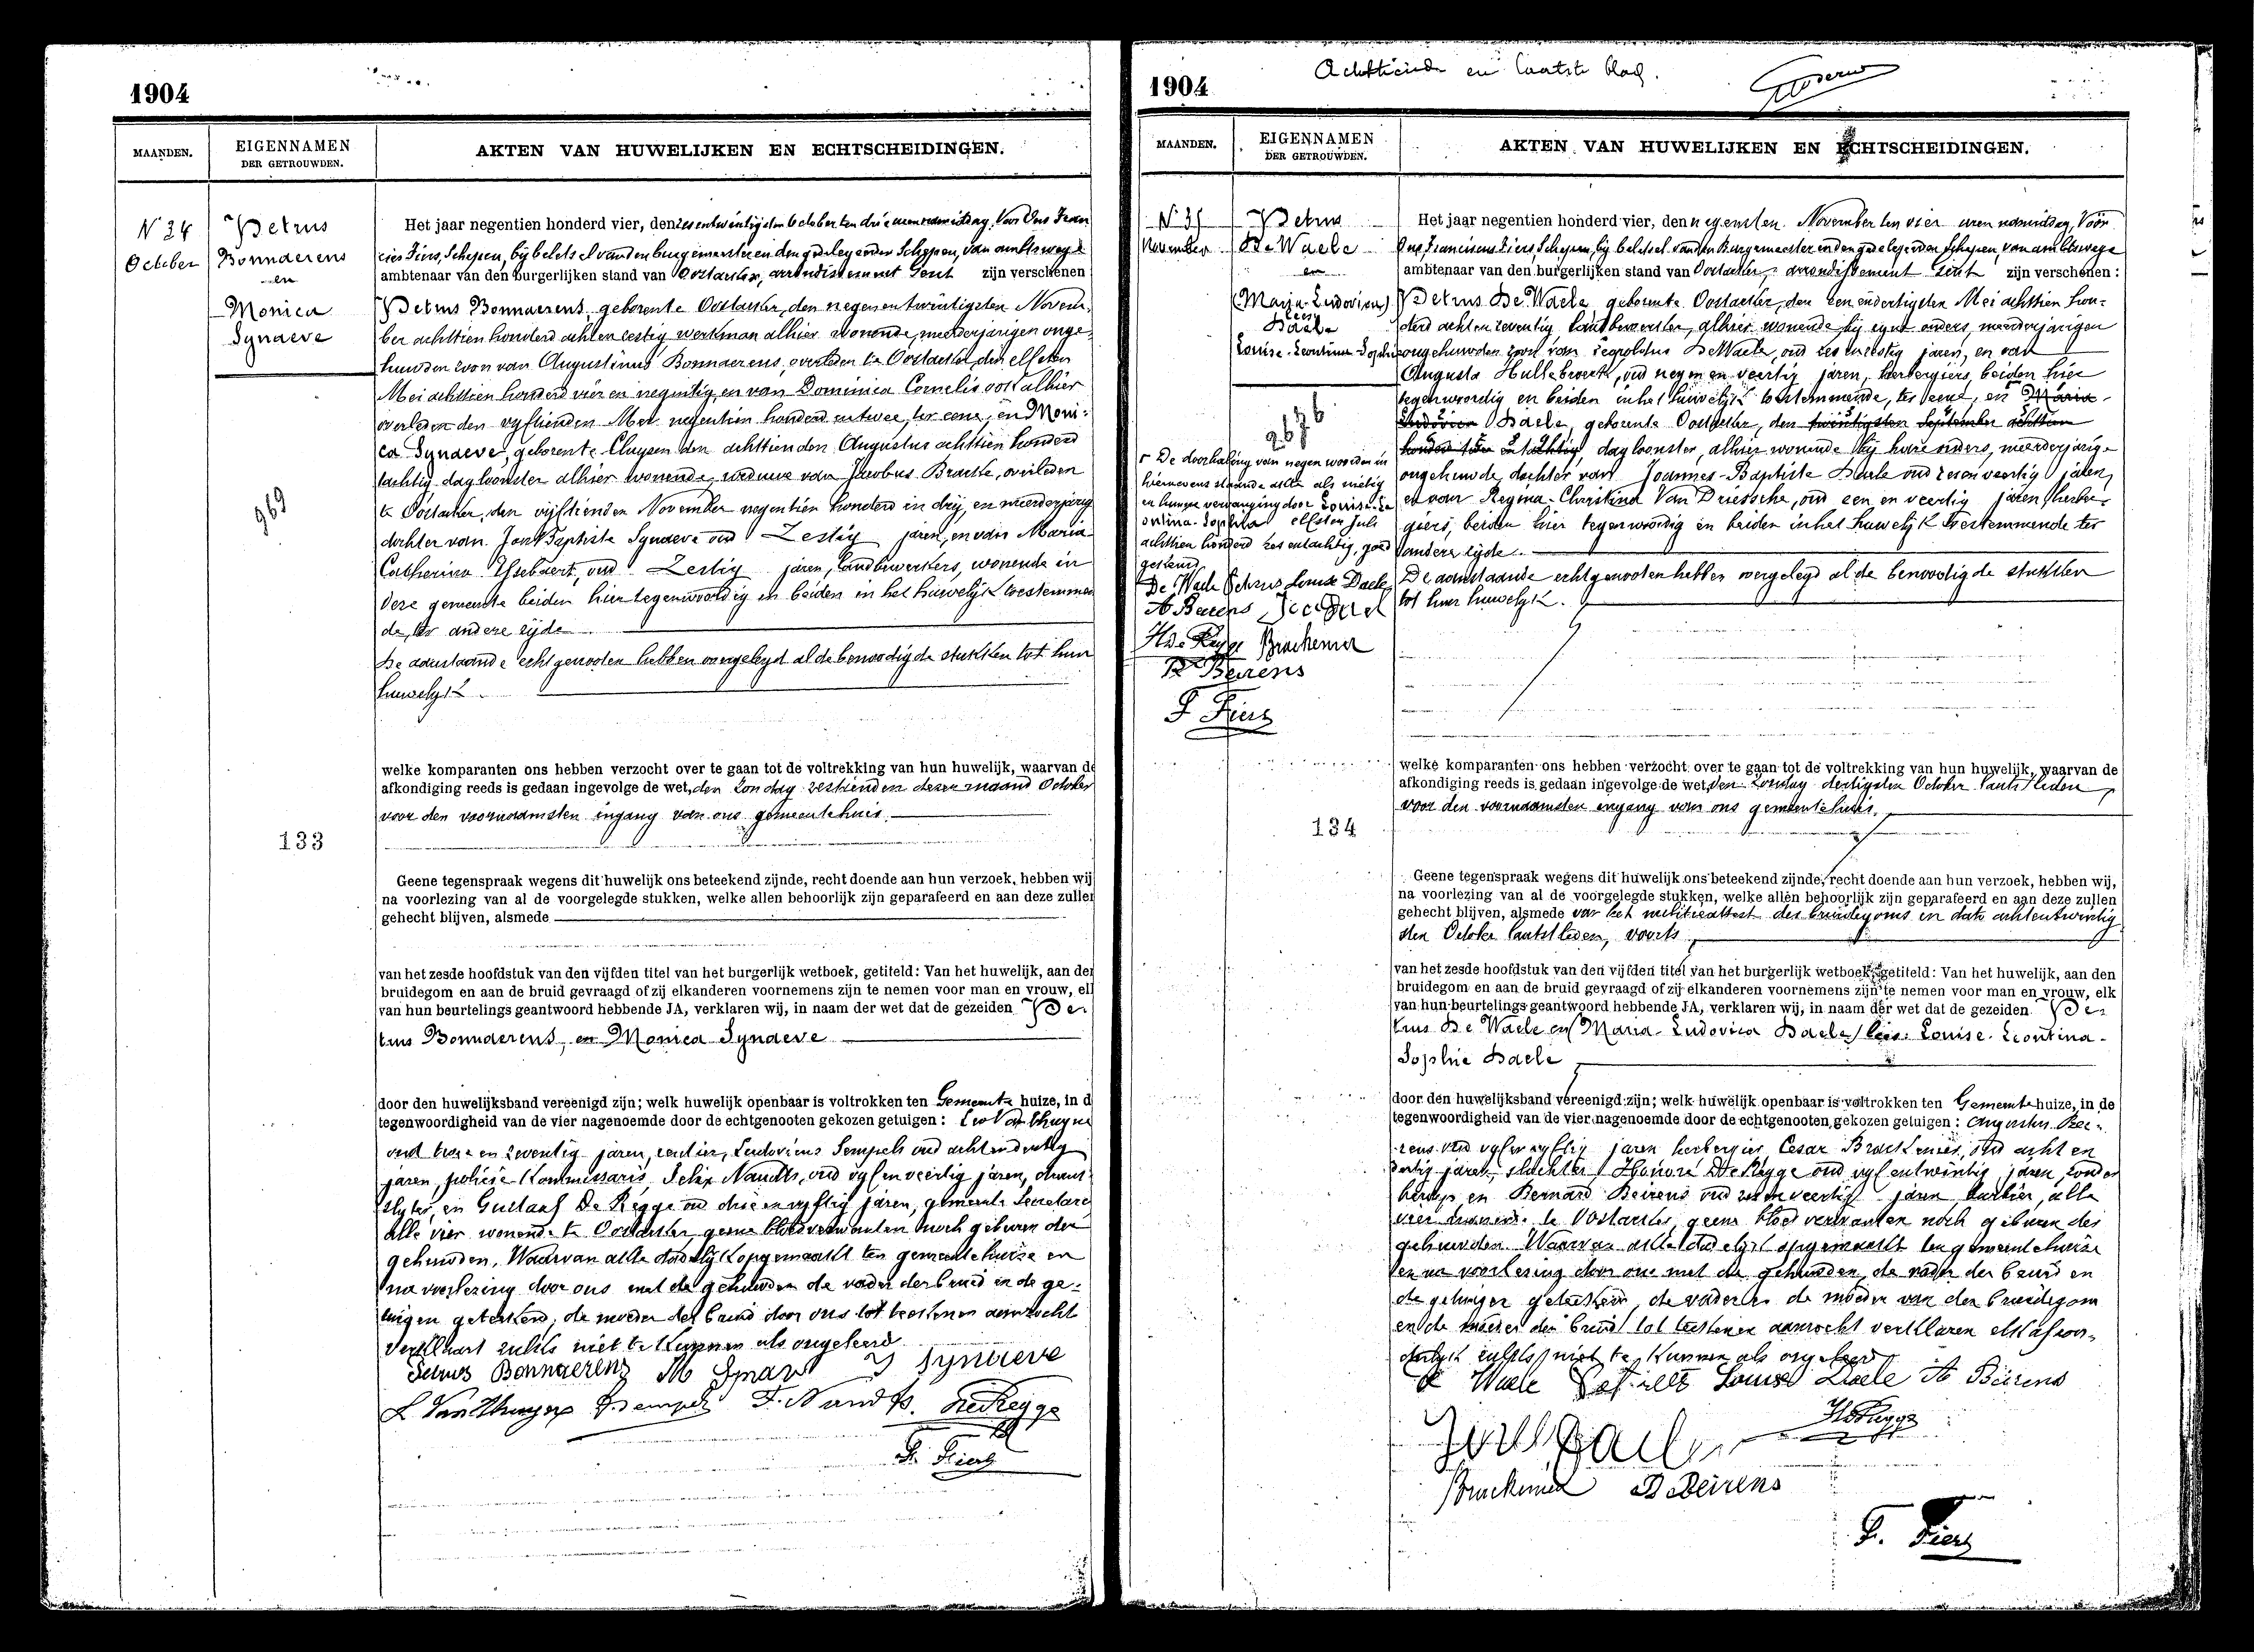 1904
MAANDEN.
EIGENNAMEN
DER GETROUWDEN.
AKTEN VAN HUWELIJKEN EN ECHTSCHEIDINGEN.
N 34
October
Petrus
Bonnaerens
en
Monica
Synaeve
969
133
Het jaar negentien honderd vier, den zes entwintigsten October ten drie uren namiddag, Voor Ons Fran
cies Fiers, Schepen, bij beletsel van den burgemeester en den gedelegeerden Schepen, van ambtswege
ambtenaar van den burgerlijken stand van Oostacker, arrondissement Gent zijn verschenen
Petrus Bonnaerens, geboren te Oostacker, den negenentwintigsten Novem-
ber achttien honderd achten zestig werkman alhier wonende, meerderjarigen onge-
huwden zoon van Augustinus Bonnaerens, overleden te Oostacker den elfsten
Mei achttien honderd vier en negentig, en van Dominica Cornelis ook alhier
overleden den vyftienden Mei negentien honderd en twee, ter eene, en Moni-
ca Synaeve, geboren te Cluysen den achttienden Augustus achttien honderd
tachtig dagloonster alhier wonende, weduwe van Jacobus Bracke, overleden
te Oostacker, den vijftienden November negentien honderd en drij, en meerderjarige
dochter van Joan Baptiste Synaeve oud Zestig jaren, en van Maria-
Catherina Ysebaert, oud Zestig jaren, landbewerkers, wonende in
deze gemeente beiden hier tegenwoordig en beiden in het huwelijk toestemmen
de, ter andere zijde
De aanstaande echtgenooten hebben overgelegd al de benoodigde stukken tot hun
huwelyk.
welke komparanten ons hebben verzocht over te gaan tot de voltrekking van hun huwelijk, waarvan de
afkondiging reeds is gedaan ingevolge de wet, den zondag zestienden dezer maand October
voor den voornaamsten ingang van ons gemeentehuis.
Geene tegenspraak wegens dit huwelijk ons beteekend zijnde, recht doende aan hun verzoek, hebben wij
na voorlezing van al de voorgelegde stukken, welke allen behoorlijk zijn geparafeerd en aan deze zullen
gehecht blijven, alsmede
van het zesde hoofdstuk van den vijfden titel van het burgerlijk wetboek, getiteld: Van het huwelijk, aan den
bruidegom en aan de bruid gevraagd of zij elkanderen voornemens zijn te nemen voor man en vrouw, elk
van hun beurtelings geantwoord hebbende JA, verklaren wij, in naam der wet dat de gezeiden Pe-
trus Bonnaerens, en Monica Synaeve
door den huwelijksband vereenigd zijn; welk huwelijk openbaar is voltrokken ten Gemeente huize, in d
tegenwoordigheid van de vier nagenoemde door de echtgenooten gekozen getuigen:
oud twee en zeventig jaren, rentier, Ludovicus Sempels oud achtendertig
jaren, policie Kommissaris, Felix Naudts, oud vyf en veertig jaren,
en Gustaaf De Regge oud drie en vyftig jaren, gemeente Secretaris
alle vier wonende te Oostacker, geene bloedverwanten noch geburen der
gehuwden. Waarvan akte dadelijk opgemaakt ten gemeentehuize en
na voorlezing door ons met de gehuwden de vader der bruid en de ge-
tuigen geteekend, de moeder der bruid door ons tot teekenen aanzocht
verklaart zulks niet te kunnen als ongeleerd.
Petrus Bonnaerens M Synave J Synaeve
L Van Thuyne Sempels F. Naudts. De Regge
F. Fiers
1904
Achttiende en laatste blad.
MAANDEN.
EIGENNAMEN
DER GETROUWDEN.
AKTEN VAN HUWELIJKEN EN ECHTSCHEIDINGEN.
N 35
November
Petrus
De Waele
en
(Maria-Ludovica)
lees
Daele
Louise-Leontina-Sophie
2676
De doorhaling van negen woorden in
hiernevens staande akte als nietig
en hunne vervanging door Louise-Le
ontina-Sophia elfsten Juli
achttien honderd zes entachtig, goed
gekeurd
De Waele Petrus Louise Daele
A Beirens
H De Regge Brackenier
B Beirens
F Fiers
134
Het jaar negentien honderd vier, den negensten November ten vier uren namiddag, Voor
Ons, Franciscus Fiers, Schepen, bij beletsel van den Burgemeester en den gedelegeerden Schepen, van ambtswege
ambtenaar van den burgerlijken stand van Oostacker, arrondissement Gent zijn verschenen:
Petrus De Waele geboren te Oostacker, den een endertigsten Mei achttien hon-
derd achten zeventig landbewerker, alhier wonende bij zijne ouders, meerderjarigen
ongehuwden zoon van Leopoldus De Waele, oud zes en zestig jaren, en van
Augusta Hullebroeck, oud negen en veertig jaren, herbergiers, beiden hier
tegenwoordig en beiden in het huwelijk toestemmende, ter eene, en Maria-
Ludovica Daele, geboren te Oostacker, den twintigsten September achttien
honderd vier en tachtig, dagloonster, alhier wonende bij hare ouders, meerderjarige
ongehuwde dochter van Joannes-Baptiste Daele oud zes en veertig jaren,
en van Regina-Christina Van Driessche, oud een en veertig jaren, herber-
giers, beiden hier tegenwoordig en beiden in het huwelijk toestemmende ter
andere zijde.
De aanstaande echtgenooten hebben overgelegd al de benoodigde stukken
tot hun huwelyk.
welke komparanten ons hebben verzocht over te gaan tot de voltrekking van hun huwelijk, waarvan de
afkondiging reeds is gedaan ingevolge de wet, den Zondag dertigsten October laatstleden,
voor den voornaamsten ingang van ons gemeentehuis.
Geene tegenspraak wegens dit huwelijk ons beteekend zijnde, recht doende aan hun verzoek, hebben wij,
na voorlezing van al de voorgelegde stukken, welke allen behoorlijk zijn geparafeerd en aan deze zullen
gehecht blijven, alsmede van het militieattest des bruidegoms in dato achtentwintig
sten October laatstleden, voorts
van het zesde hoofdstuk van den vijfden titel van het burgerlijk wetboek, getiteld: Van het huwelijk, aan den
bruidegom en aan de bruid gevraagd of zij elkanderen voornemens zijn te nemen voor man en vrouw, elk
van hun beurtelings geantwoord hebbende JA, verklaren wij, in naam der wet dat de gezeiden Pe-
trus De Waele en (Maria-Ludovica Daele) lees: Louise-Leontina-
Sophie Daele
door den huwelijksband vereenigd zijn; welk huwelijk openbaar is voltrokken ten Gemeente huize, in de
tegenwoordigheid van de vier nagenoemde door de echtgenooten gekozen getuigen: Augustus Bei-
rens oud vyf en vyftig jaren herbergier, Cesar Brackenier, oud acht en
dertig jaren, slachter, Honoré De Regge oud vyf entwintig jaren, zonder
beroep en Bernard Beirens oud zes en veertig jaren, alle
vier wonende te Oostacker, geene bloedverwanten noch geburen der
gehuwden. Waarvan akte dadelyk opgemaakt ten gemeentehuize
en na voorlezing door ons met de gehuwden, de vader der bruid en
de getuigen geteekend, de vader en de moeder van den bruidegom
en de moeder der bruid tot teekenen aanzocht verklaren elk afzon-
derlyk zulks niet te kunnen als ongeleerd
De Waele Petrus Louise Daele A Beirens
H De Regge
Brackenier B Beirens
F. Fiers